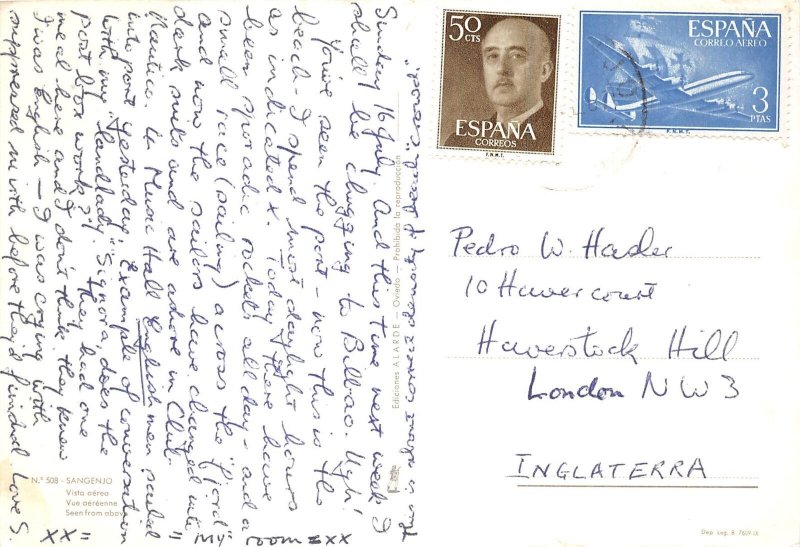 Sunday 16 July. And this time next week I
shall be chugging to Bilbao. Ugh!
You've seen the port – now this is the
beach – I spend most daylight hours
as indicated x. Today there have
been sporadic rockets all day – and a
small race (sailing) across the "fjord"
and now the sailors have changed into
dark suits and are ashore in Club
Nautico. Music Hall Englishmen sailed
into port yesterday. Example of conversation
with my "landlady". "Signora, does the
post box work?" They had one
meal here and I don't think they knew
I was English – I was crying with
suppressed mirth before they'd finished Love S.
xx
xx =
my
room = xx
Ediciones ALARDE — Oviedo — Prohibida la reproducción
N.º 508 - SANGENJO
Vista aérea
Vue aérienne
Seen from above
50
CTS
ESPAÑA
CORREOS
F.N.M.T.
ESPAÑA
CORREO AEREO
3
PTAS
F.N.M.T.
Pedro W. Hader
10 Havercourt
Haverstock Hill
London NW3
INGLATERRA
Dep. Leg. B. 7609-IX